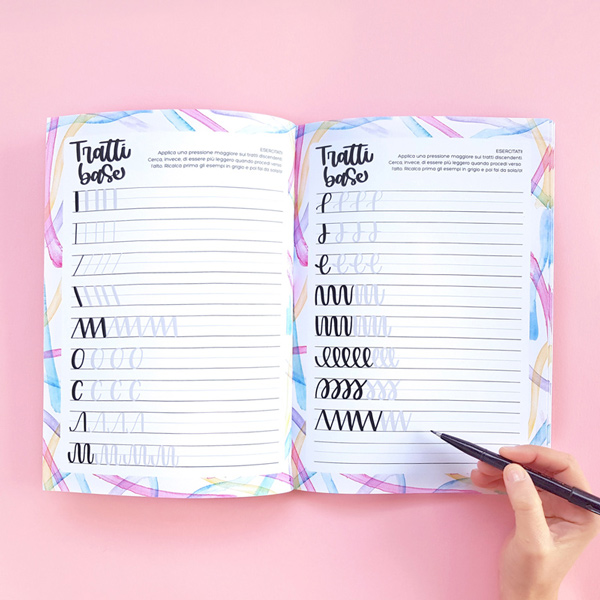 Tratti
base
ESERCITATI!
Applica una pressione maggiore sui tratti discendenti.
Cerca, invece, di essere più leggero quando procedi verso
l'alto. Ricalca prima gli esempi in grigio e poi fai da solo/a!
Tratti
base
ESERCITATI!
Applica una pressione maggiore sui tratti discendenti.
Cerca, invece, di essere più leggero quando procedi verso
l'alto. Ricalca prima gli esempi in grigio e poi fai da solo/a!